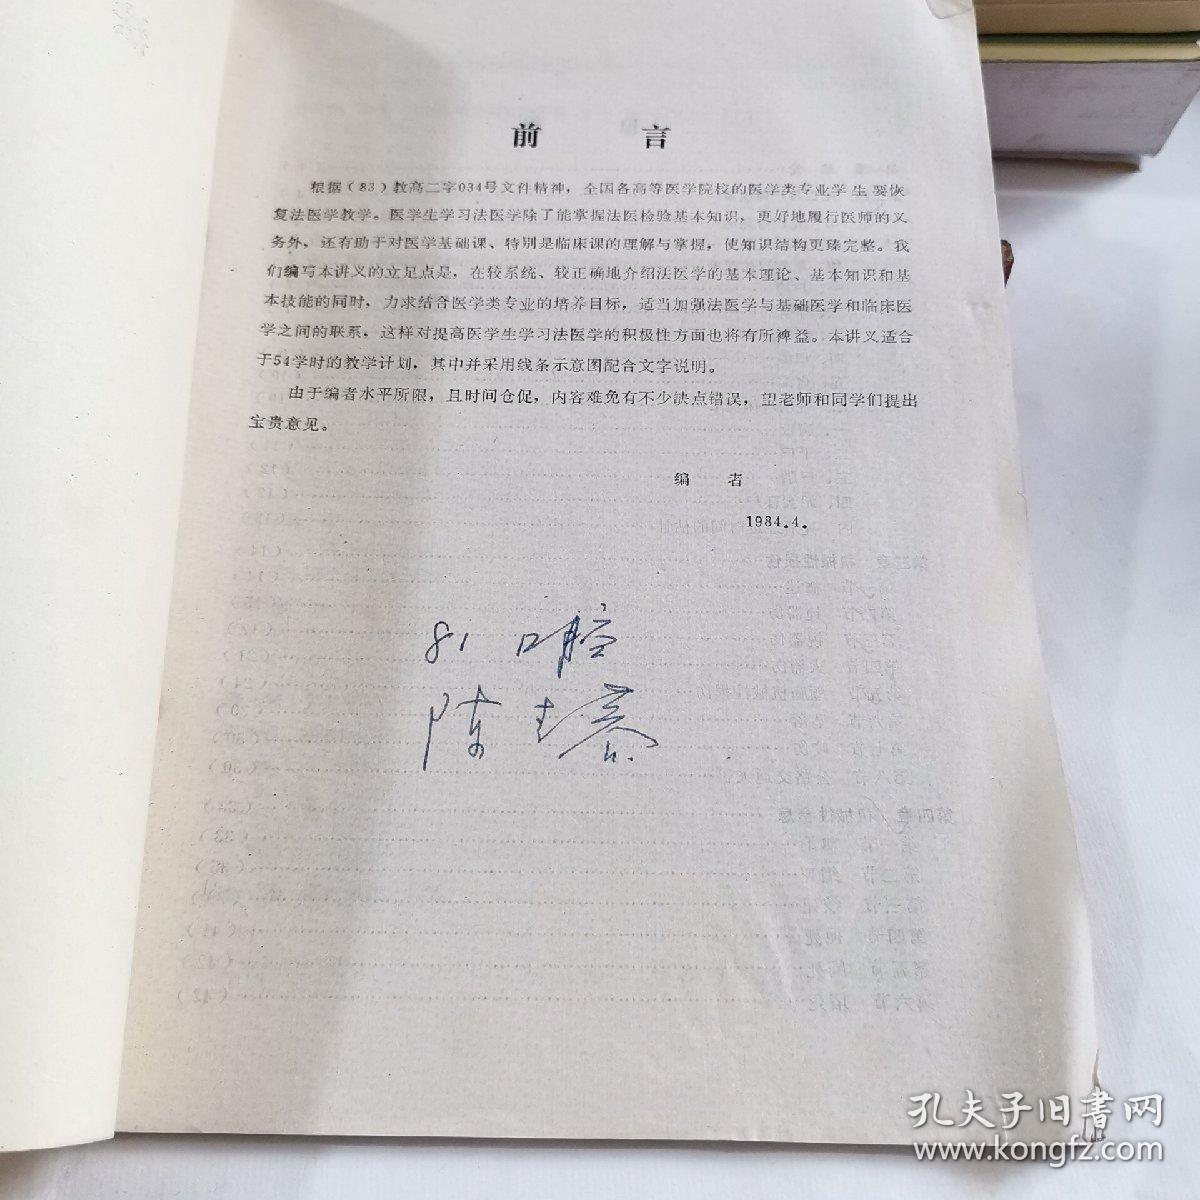 前 言
根据（83）教高二字034号文件精神，全国各高等医学院校的医学类专业学生要恢
复法医学教学。医学生学习法医学除了能掌握法医检验基本知识，更好地履行医师的义
务外，还有助于对医学基础课、特别是临床课的理解与掌握，使知识结构更臻完整。我
们编写本讲义的立足点是，在较系统、较正确地介绍法医学的基本理论、基本知识和基
本技能的同时，力求结合医学类专业的培养目标，适当加强法医学与基础医学和临床医
学之间的联系，这样对提高医学生学习法医学的积极性方面也将有所裨益。本讲义适合
于54学时的教学计划，其中并采用线条示意图配合文字说明。
由于编者水平所限，且时间仓促，内容难免有不少缺点错误，望老师和同学们提出
宝贵意见。
编 者
1984.4.
81 口腔
陈
孔夫子旧书网
www.kongfz.com